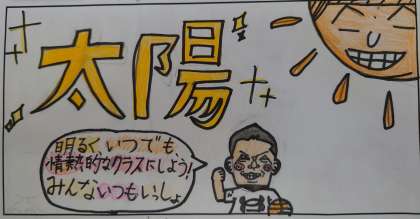 太陽
明るくいつでも
情熱的なクラスにしよう!
みんないつもいっしょ